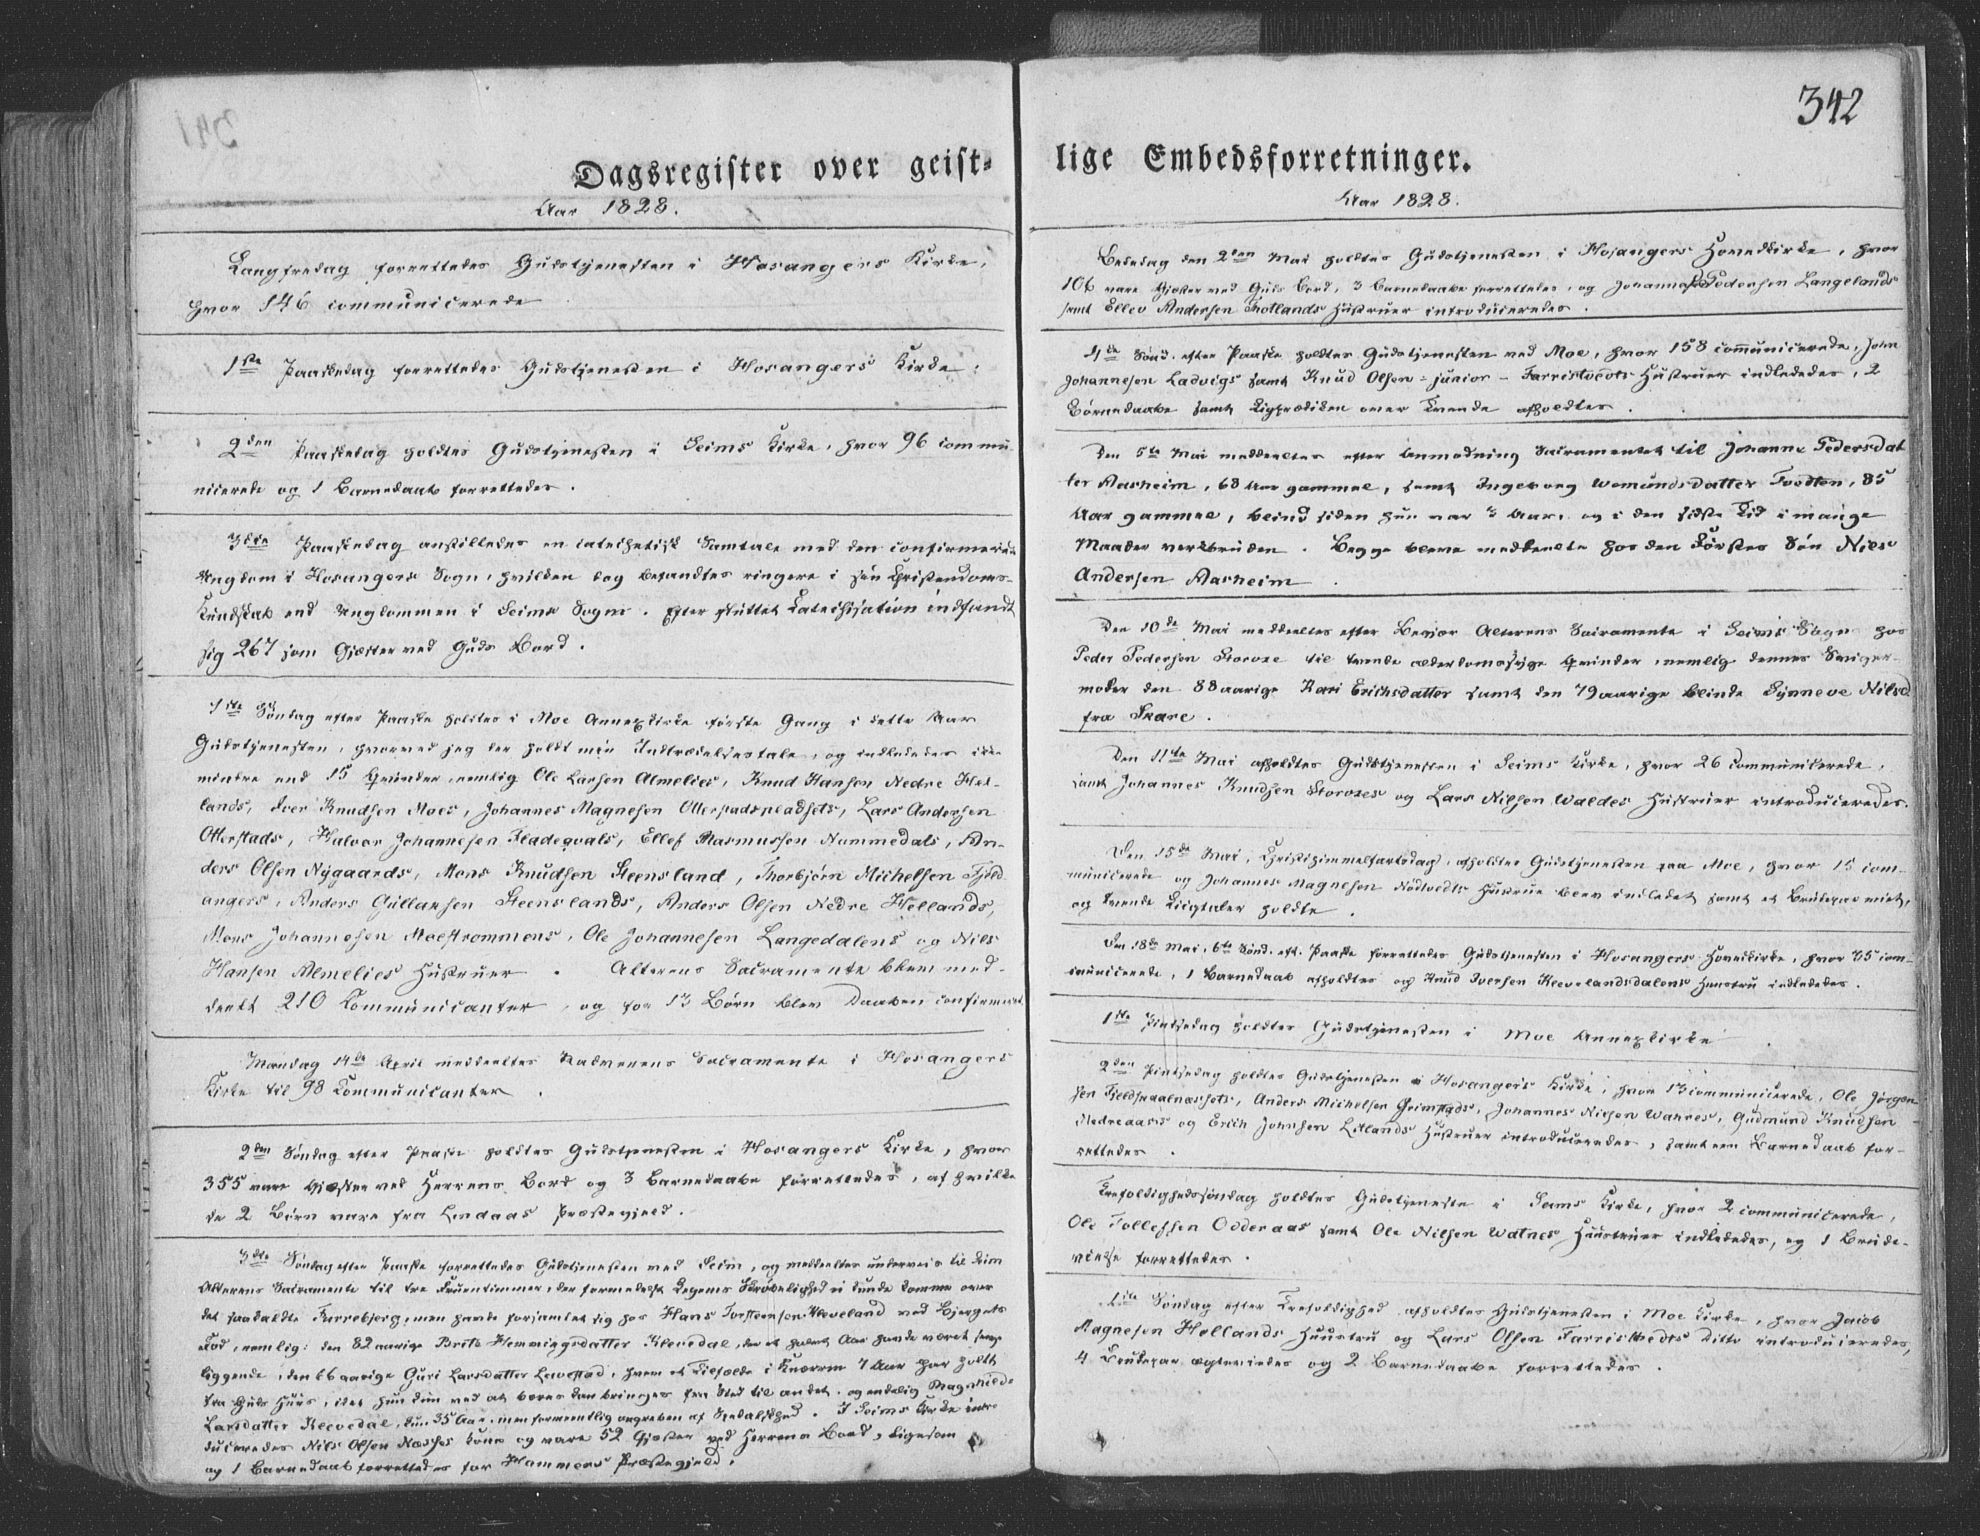 342
Dagsregister over geist-
Aar 1828.
Langfredag forrettedes Gudstjenesten i Hosangers Kirke,
hvor 146 communicerede
1ste Paaskedag forrettedes Gudstjenesten i Hosangers Kirke.
2den Paaskedag holdtes Gudstjenesten i Seims Kirke, hvor 96 commu-
nicerede og 1 Barnedaab forrettedes.
3die Paaskedag anstilledes en catechetisk Samtale med den confirmerede
Ungdom i Hosangers Sogn, hvilken dog befandtes ringere i sin Christendoms-
Kundskab end Ungdommen i Seims Sogn. Efter sluttet Catechisation indfandt
sig 267 som Gjæster ved Guds Bord.
1ste Søndag efter Paaske holdtes i Moe Annexkirke første Gang i dette Aar
Gudstjenesten, hvorved jeg der holdt min Indtrædelsestale, og indlededes ikke
mindre end 15 Qvinder, nemlig Ole Larsen Almelies, Knud Hansen Nedre Hel-
lands, Iver Knudsen Moes, Johannes Magnesen Otterstadspladsets, Lars Andersen
Otterstads, Halvor Johannesen Fladeqvals, Ellef Rasmussen Nummedals, An-
ders Olsen Nygaards, Mons Knudsen Steensland, Thorbjørn Michelsen Fjeld-
angers, Anders Gullaksen Steenslands, Anders Olsen Nedre Hellands,
Mons Johannesen Moestrømmens, Ole Johannesen Langedalens og Nils
Hansen Almelies Hustruer. Alterens Sacramente blev med-
deelt 210 Communicanter, og for 13 Børn blev Daaben confirmeret
Mandag 14de April meddeeltes Nadverens Sacramente i Hosangers
Kirke til 98 Communicanter.
2den Søndag efter Paaske holdtes Gudstjenesten i Hosangers Kirke, hvor
355 vare Gjæster ved Herrens Bord og 3 Barnedaabe forrettedes, af hvilke
de 2 Børn vare fra Lindaas Præstegjeld.
3die Søndag efter Paaske forrettedes Gudstjenesten ved Seim, og meddeeltes underveis til Seim
Alterens Sacramente til tre Fruentimmer, der formedelst Legems Skrøbelighed ei kunde komme over
det saakaldte Furrebjerg, men havde forsamlet sig hos Hans Torsteensen Kleveland ved Bjergets
Fod, nemlig: den 82 aarige Brite Hemmingsdatter Klevedal, der et halvt Aar havde været senge-
liggende, den 66 aarige Guri Larsdatter Løvestad, hvem et Tilfælde i Knæerne 7 Aar har holdt
fra Guds Huus, idet hun kun ved at bæres kan bringes fra Sted til andet, og endelig Magnhilde
Larsdatter Klevedal, kun 35 Aar, men formeentlig angreben af Spedalskhed. I Seims Kirke intro-
duceredes Nils Olsen Næsses Kone og vare 52 Gjæster ved Herrens Bord, ligesom
og 1 Barnedaab forrettedes for Hammers Præstegjeld.
lige Embedsforretninger.
Aar 1828.
Bededag den 2den Mai holdtes Gudstjenesten i Hosangers Hovedkirke, hvor
106 vare Gjæster ved Guds Bord, 3 Barnedaabe forrettedes, og Johannes Pedersen Langelands
samt Ellev Andersen Totlands Hustruer introduceredes.
4de Sønd. efter Paaske holdtes Gudstjenesten ved Moe, hvor 158 communicerede, John
Johannesen Ladvigs samt Knud Olsen - junior - Farristvedts Hustruer indlededes, 2
Børnedaabe samt Ligprædiken over Tvende afholdtes.
Den 5te Mai meddeeltes efter Anmodning Sacramentet til Johanne Pedersdat
ter Aasheim, 68 Aar gammel, samt Ingeborg Wemundsdatter Tvedten, 85
Aar gammel, blind siden hun var 3 Aar, og i den sidste Tid i mange
Maader verkbruden. Begge bleve meddeelte hos den Førstes Søn Niels
Andersen Aasheim.
Den 10de Mai meddeeltes efter Begjær Alterens Sacramente i Seims Sogn hos
Peder Pedersen Storoxe til tvende alderdomssvage Qvinder, nemlig dennes Sviger-
moder den 88 aarige Kari Erichsdatter samt den 79 aarige blinde Synneve Nilsd
fra Skare.
Den 11te Mai afholdtes Gudstjenesten i Seims Kirke, hvor 26 communicerede,
samt Johannes Knudsen Storoxes og Lars Nilsen Waldes Hustruer introduceredes.
Den 15de Mai, Christihimmelfartsdag, afholdtes Gudstjenesten paa Moe, hvor 15 com-
municerede og Johannes Magnesen Nødtvedts Hustrue blev indledet samt et Brudepar viet,
og tvende Liigtaler holdte.
Den 18de Mai, 6te Sønd. eft. Paaske forrettedes Gudstjenesten i Hosangers Hovedkirke, hvor 35 com-
municerede, 1 Barnedaab afholdtes og Knud Iversen Kleivelandsdalens Huustru indlededes.
1ste Pintsedag holdtes Gudstjenesten i Moe Annexkirke.
2den Pintsedag holdtes Gudstjenesten i Hosangers Kirke, hvor 13 communicerede, Ole Jørgen-
sen Anders Michelsen Grimstads, Johannes Nilsen Watnes, Gudmund Knudsen
Nedreaas og Erich Johnsen Litlands Hustruer introduceredes, samt een Barnedaab for-
rettedes.
Trefoldighedssøndag holdtes Gudstjeneste i Seims Kirke, hvor 2 communicerede,
Ole Tollefsen Odderaas samt Ole Nilsen Watnes Huustruer indlededes, og 1 Brude-
vielse forrettedes.
1ste Søndag efter Trefoldighed afholdtes Gudstjenesten i Moe Kirke, hvor Jacob
Magnesen Hollands Huustru og Lars Olsen Farristvedts ditto introduceredes,
4 Brudepar ægteviedes og 2 Barnedaabe forrettedes.